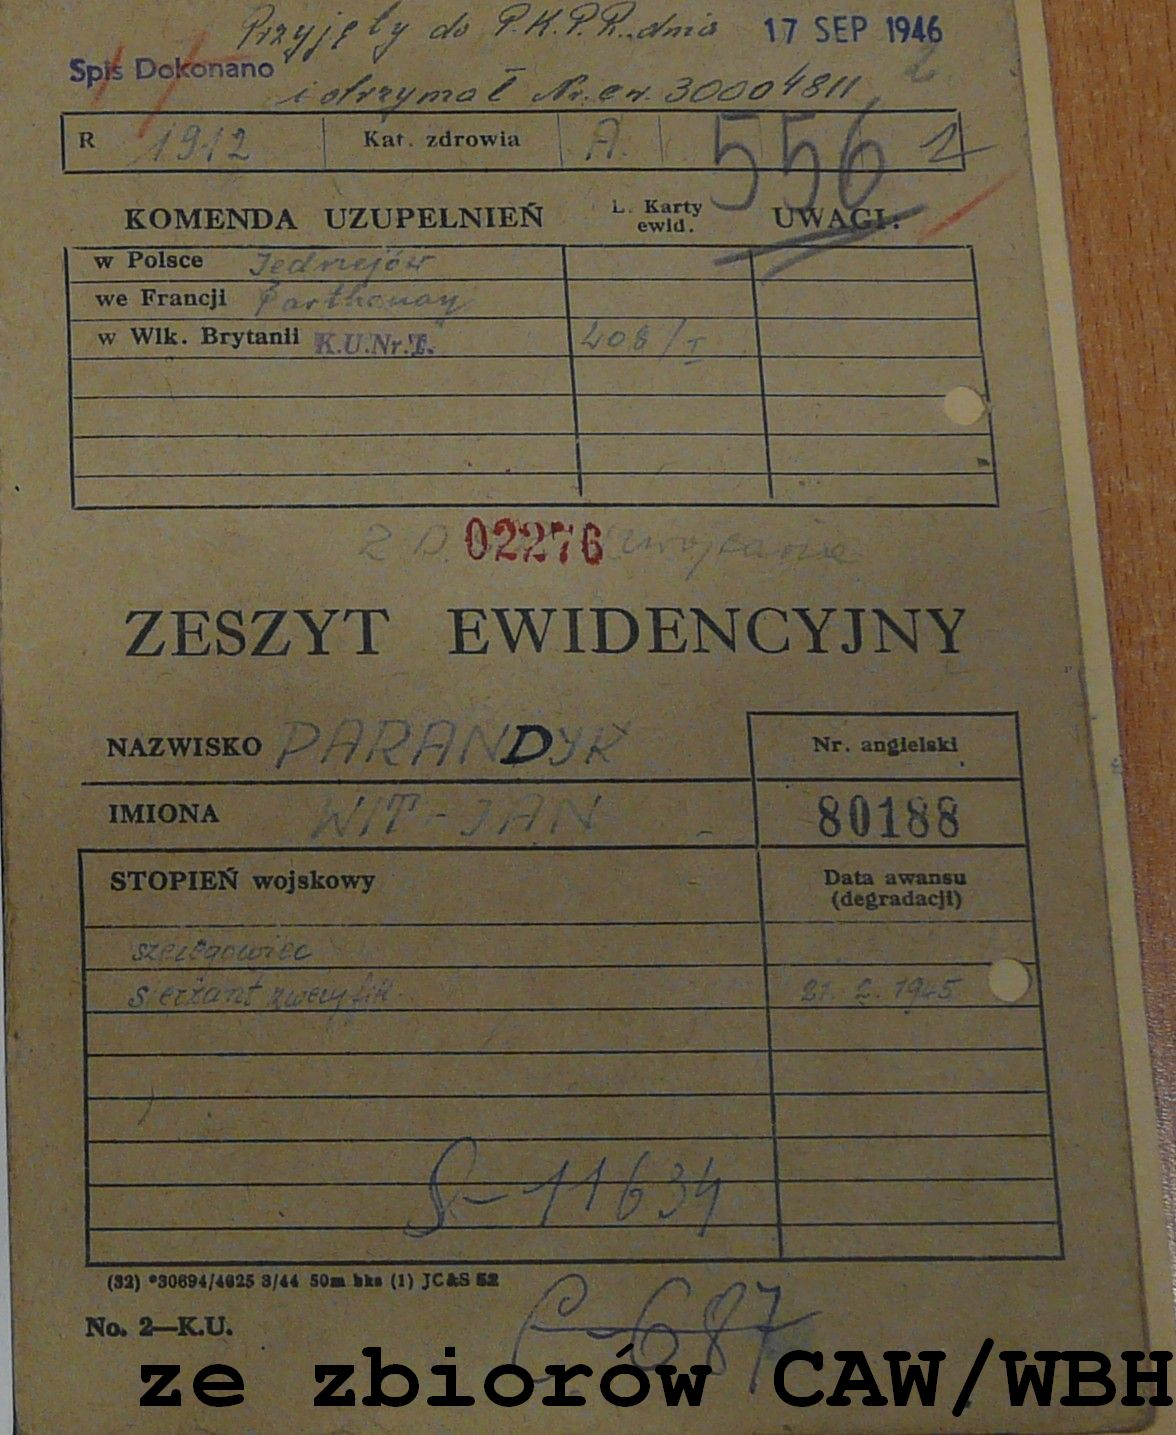 Przyjęty do P.K.P.R. dnia 17 SEP 1946
Spis Dokonano
i otrzymał Nr. ew. 30004811
R 1912 Kat. zdrowia A. 556 1
KOMENDA UZUPEŁNIEŃ L. Karty ewid. UWAGI.
w Polsce Jędrzejów
we Francji Parthenay
w Wlk. Brytanii K.U.Nr.I. 408/I
02276
ZESZYT EWIDENCYJNY
NAZWISKO PARANDYK Nr. angielski
IMIONA WIT-JAN 80188
STOPIEŃ wojskowy Data awansu (degradacji)
szeregowiec
sierżant zweryfik. 21. 2. 1945
S-11634
(32) *30694/4625 3/44 50m bks (1) JC&S 52
C-687
No. 2—K.U.
ze zbiorów CAW/WBH